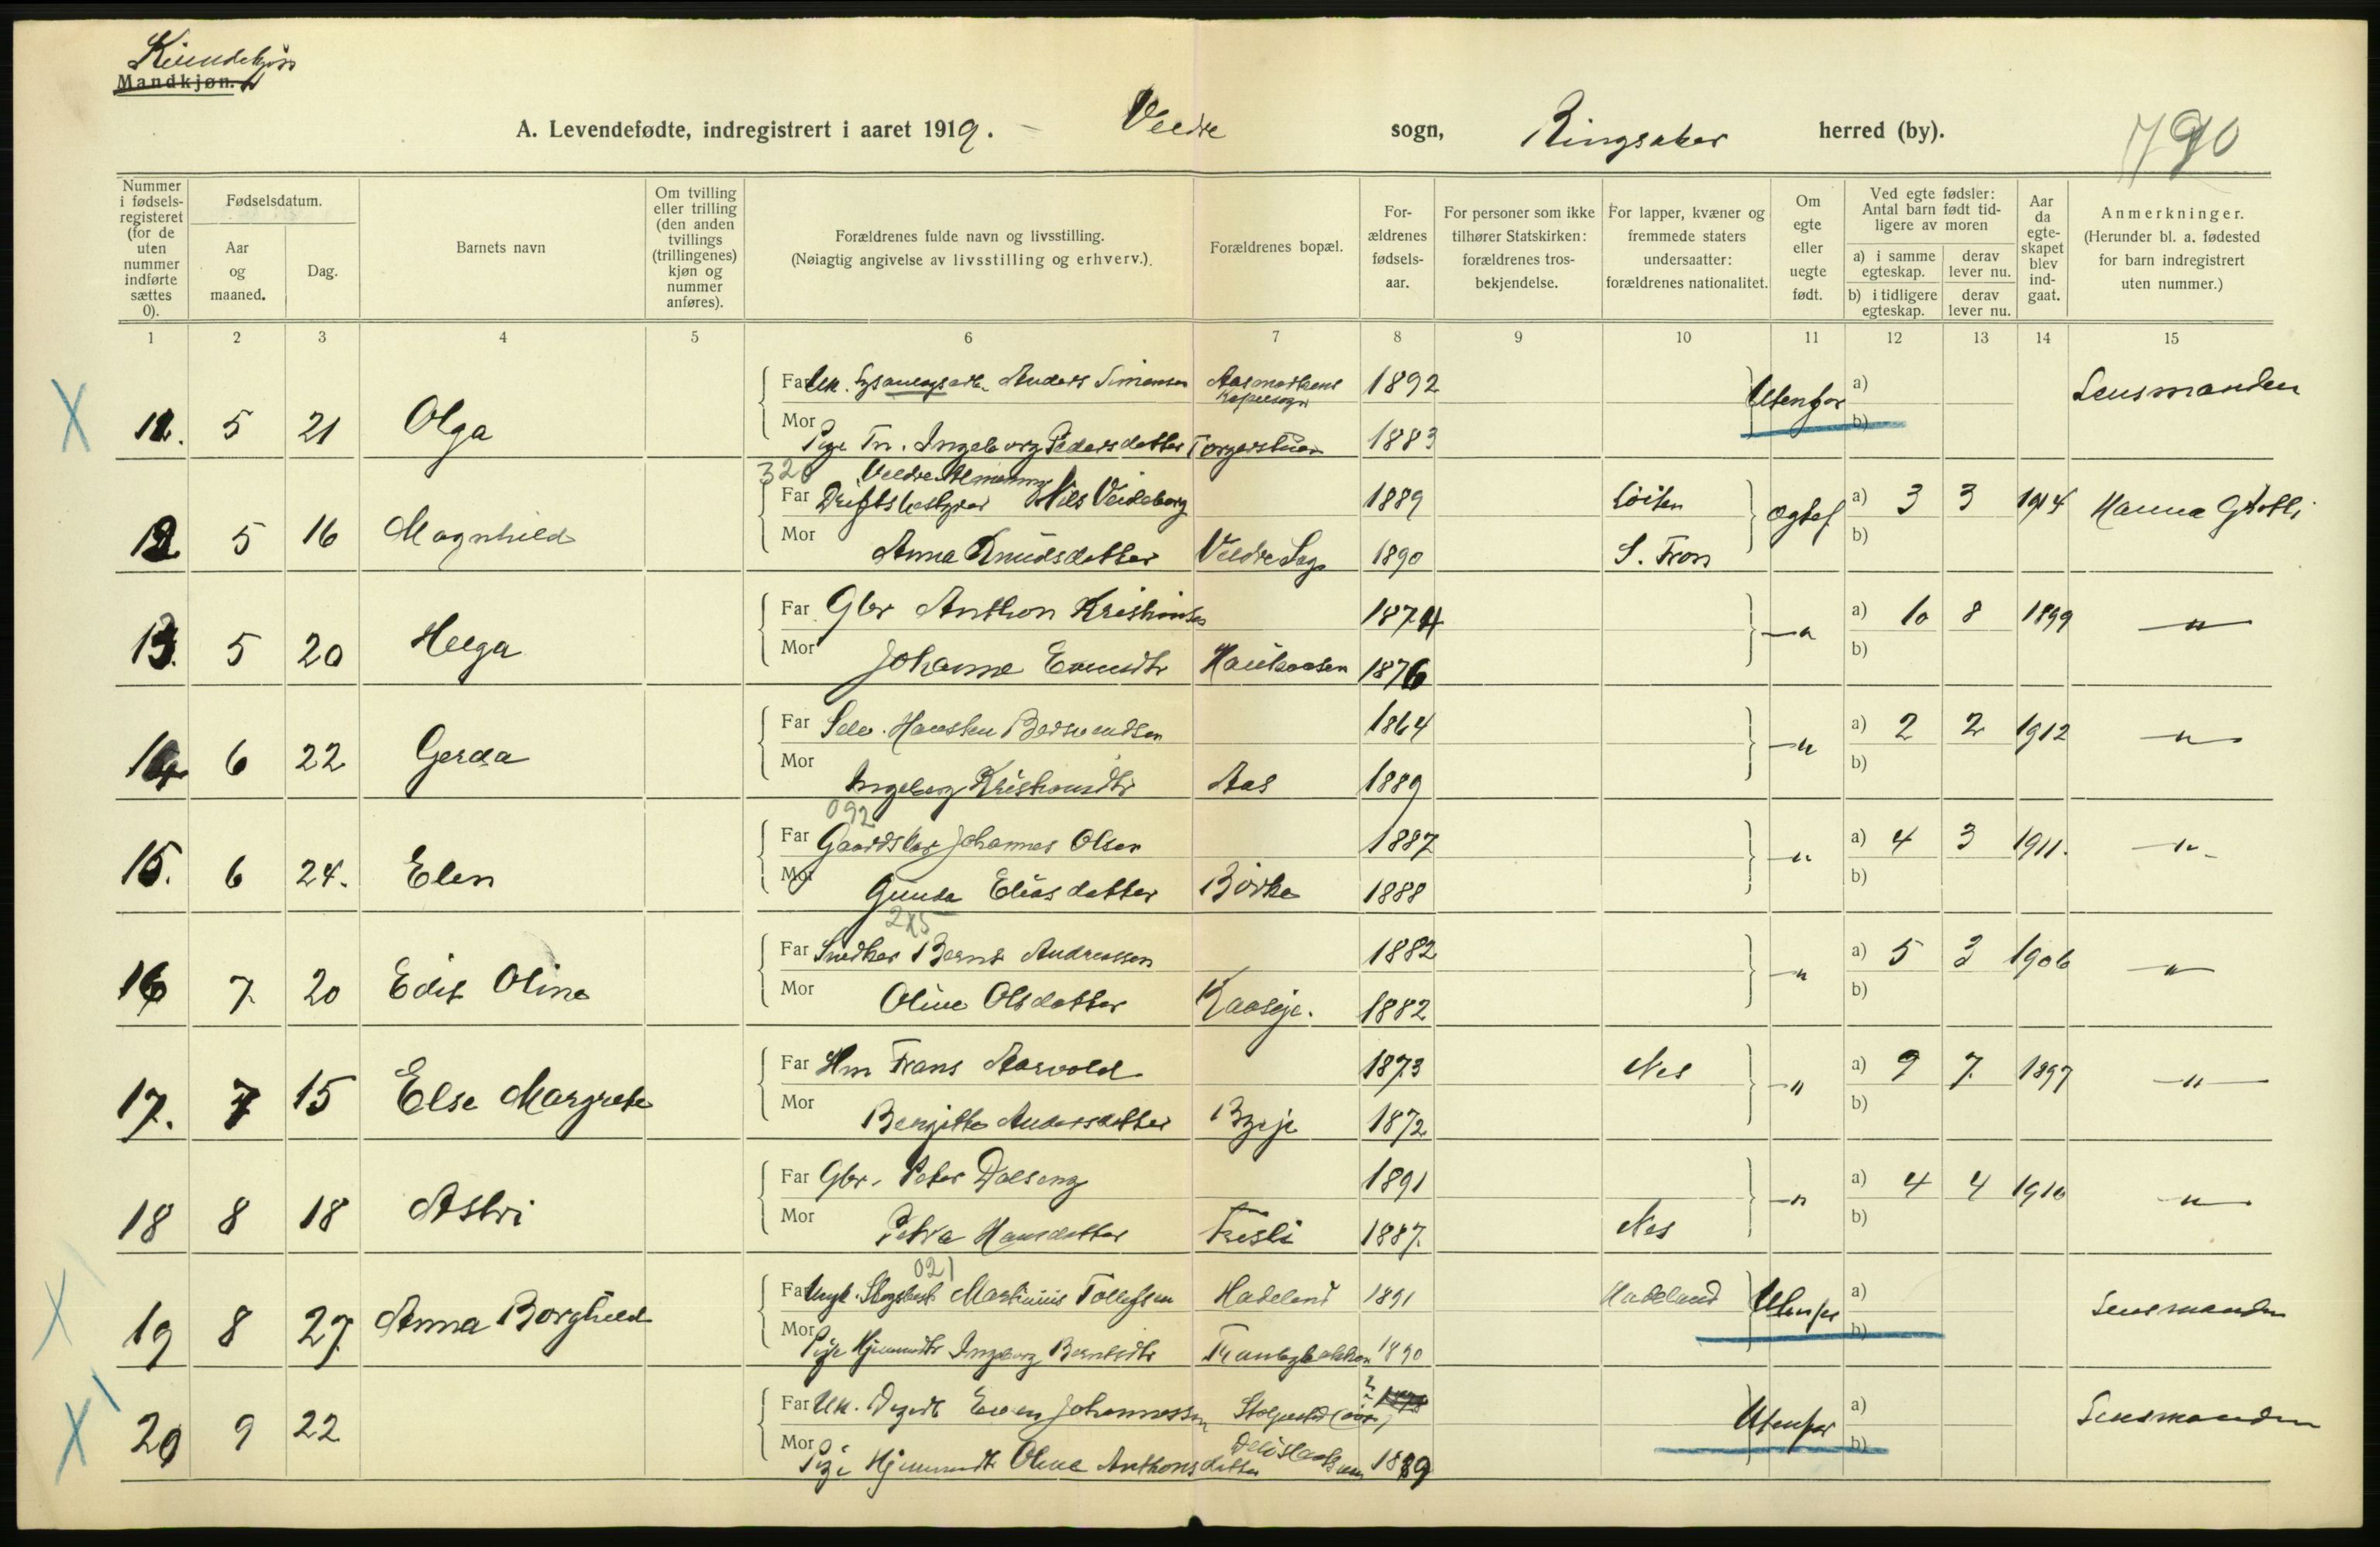 Kvindekjøn
Mandkjøn.
A. Levendefødte, indregistrert i aaret 1919. Veldre sogn, Ringsaker herred (by). 790
Nummer i fødsels-registeret (for de uten nummer indførte sættes 0).
Fødselsdatum.
Aar og maaned.
Dag.
Barnets navn
Om tvilling eller trilling (den anden tvillings (trillingenes) kjøn og nummer anføres).
Forældrenes fulde navn og livsstilling. (Nøiagtig angivelse av livsstilling og erhverv.).
Forældrenes bopæl.
For-ældrenes fødsels-aar.
For personer som ikke tilhører Statskirken: forældrenes tros-bekjendelse.
For lapper, kvæner og fremmede staters undersaatter: forældrenes nationalitet.
Om egte eller uegte født.
Ved egte fødsler: Antal barn født tid-ligere av moren
a) i samme egteskap. derav lever nu.
b) i tidligere egteskap. derav lever nu.
Aar da egte-skapet blev ind-gaat.
Anmerkninger. (Herunder bl. a. fødested for barn indregistrert uten nummer.)
1 2 3 4 5 6 7 8 9 10 11 12 13 14 15
Far Uk. Anders Simensen Aasmarkens Kapelsogn 1892 Utenfor a) Lensmanden
11. 5 21 Olga
Mor Pige Tn. Ingeborg Pedersdatter Torgerstuen 1883 b)
320 Veldre Almenning
Far Driftsbestyrer Nils Veideborg 1889 Løiten Egtef a) 3 3 1914 Hanna Grøtli
12 5 16 Magnhild
Mor Anna Knudsdatter Veldre Sag 1890 S. Fron b)
Far Gbr Anthon Kristiansen 1874 —„ a) 10 8 1899 —„—
13. 5 20 Helga
Mor Johanne Evensdtr Haukaasen 1876 b)
Far Selv. Berntsen 1864 —„ a) 2 2 1912 —„—
14 6 22 Gerda
Mor Ingeborg Kristiansdtr Aas 1889 b)
092
Far Gaardsbr Johannes Olsen 1887 —„ a) 4 3 1911. —„—
15. 6 24. Elen
Mor Gunda Eliasdatter Børke 1888 b)
215
Far Snedker Bernt Andreassen 1882 —„ a) 5 3 1906 —„—
16 7 20 Edit Oline
Mor Oline Olsdatter Kaaseje. 1882 b)
Far Hm Frans Aasvold 1873 Nes —„ a) 9 7 1897 —„—
17. 7 15 Else Margrete
Mor Bergitte Andersdatter 1872 b)
Far Gbr. Peter Dalseng 1891 —„ a) 4 4 1910 —„—
18 8 18 Astri
Mor Petra Hansdatter Fresli 1887 Nes b)
021
Far Ungk. Skogsarb Martinius Tollefsen Hadeland 1891 Hadeland Utenfor a) Lensmanden
19 8 27 Anna Borghild
Mor Pige Hjemmedtr Ingeborg Berntsdtr Tranbergbakken 1890 b)
Far Uk. Even Johannessen Utenfor a) Lensmanden
20 9 22
Mor Pige Hjemmedtr Oline Anthonsdatter 1889 b)